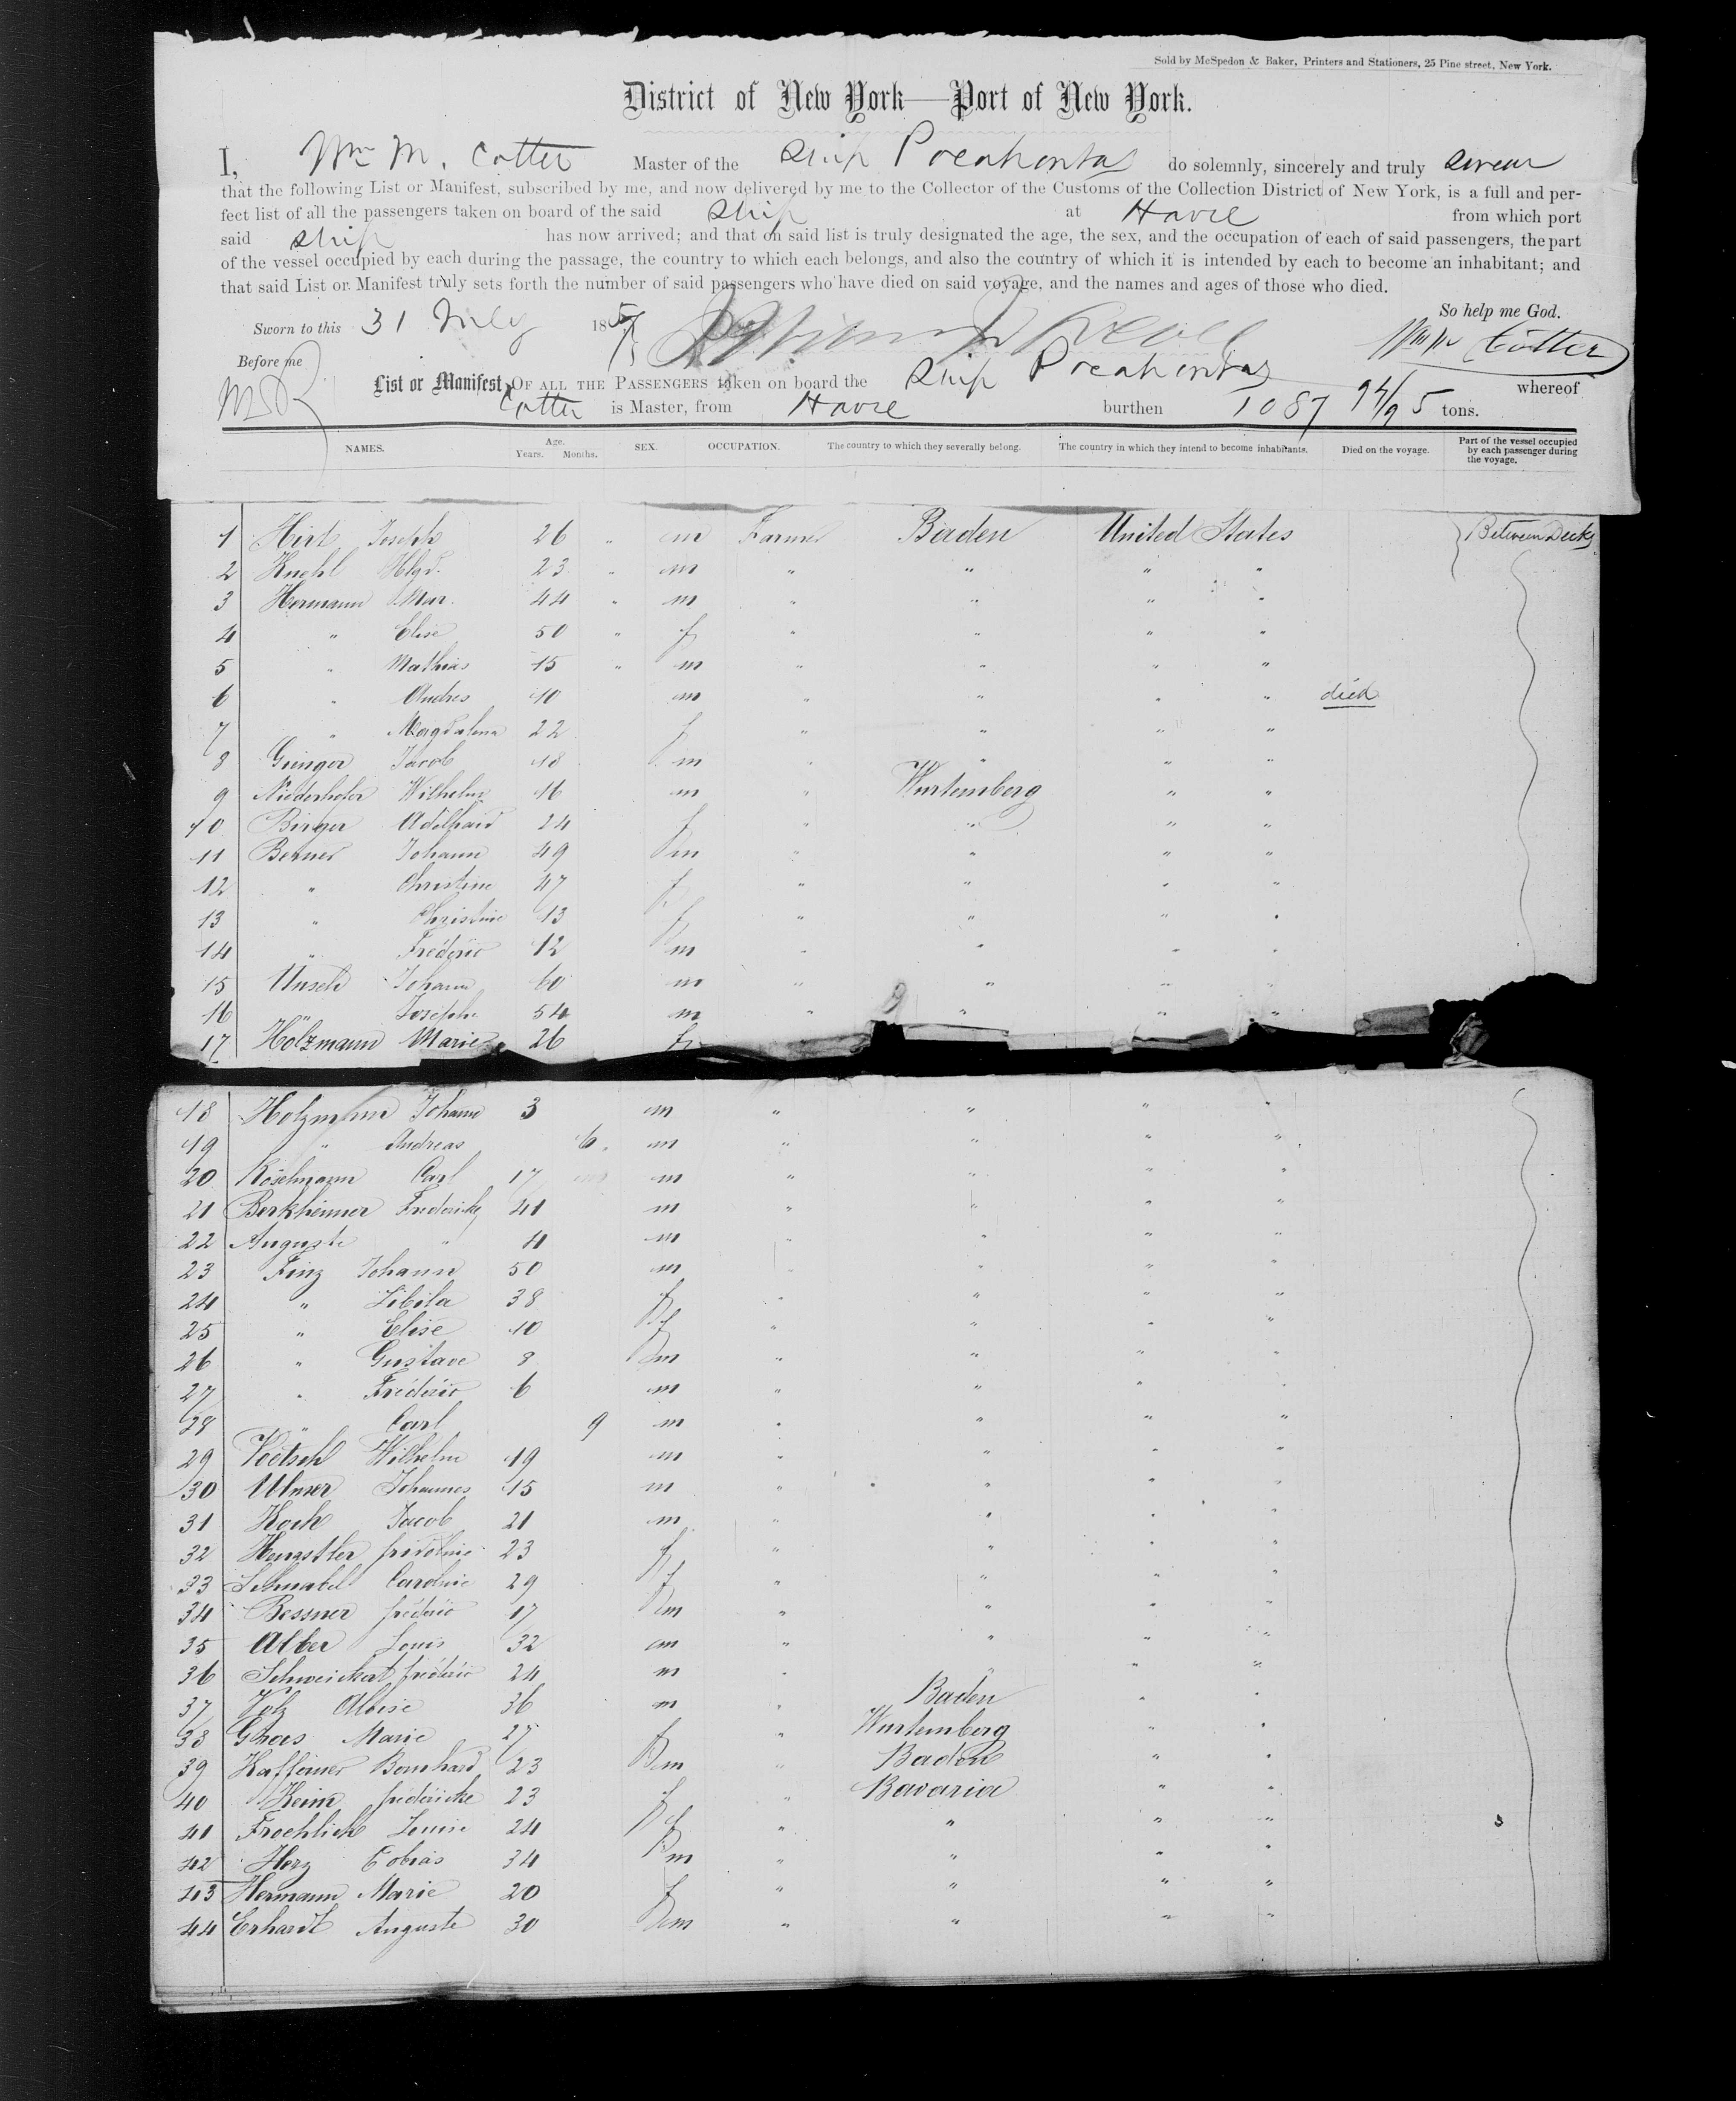 Sold by McSpedon & Baker, Printers and Stationers, 25 Pine street, New York.
District of New York—Port of New York.
I, Wm M. Cotter Master of the Ship Pocahontas do solemnly, sincerely and truly swear
that the following List or Manifest, subscribed by me, and now delivered by me to the Collector of the Customs of the Collection District of New York, is a full and per-
fect list of all the passengers taken on board of the said Ship at Havre from which port
said Ship has now arrived; and that on said list is truly designated the age, the sex, and the occupation of each of said passengers, the part
of the vessel occupied by each during the passage, the country to which each belongs, and also the country of which it is intended by each to become an inhabitant; and
that said List or Manifest truly sets forth the number of said passengers who have died on said voyage, and the names and ages of those who died.
So help me God.
Sworn to this 31 July 185 Cotter
Before me
List or Manifest OF ALL THE PASSENGERS taken on board the Ship Pocahontas whereof
Cotter is Master, from Havre burthen 1087 94/95 tons.
NAMES. Age. Years. Months. SEX. OCCUPATION. The country to which they severally belong. The country in which they intend to become inhabitants. Died on the voyage. Part of the vessel occupied by each passenger during the voyage.
1 Hirt Joseph 26 " m Farmer Baden United States Between Decks
2 Knehl 23 " m " " " "
3 Hermann Mar. 44 " m " " " "
4 " Elise 50 " f " " " "
5 " Mathias 15 " m " " " "
6 " Andres 10 m " " " " died
7 " Magdalena 22 f " " " "
8 Jacob 18 m " " " "
9 Niederhofer Wilhelm 16 m " Wurtemberg " "
10 Binger Adelhaid 24 f " " " "
11 Berner Johann 49 m " " " "
12 " Christine 47 f " " " "
13 " Christine 13 f " " " "
14 " Frédéric 12 m " " " "
15 Unseld Johann 60 m " " " "
16 " Joseph 54 m " " " "
17 Holzmann Marie 26 f
18 Holzmann Johann 3 m " " " "
19 " Andreas 6 m " " " "
20 Roselmann Carl 17 m " " " "
21 Berkheimer Frederick 41 m " " " "
22 Auguste " 4 m " " " "
23 Finz Johann 50 m " " " "
24 " Sibila 38 f " " " "
25 " Elise 10 f " " " "
26 " Gustave 8 m " " " "
27 " Frédéric 6 m " " " "
28 " Carl 9 m " " " "
29 Voetsch Wilhelm 19 m " " " "
30 Ulmer Johannes 15 m " " " "
31 Koch Jacob 21 m " " " "
32 Hengstler fridoline 23 f " " " "
33 Schnabel Caroline 29 f " " " "
34 Bessner frédéric 17 m " " " "
35 Alber Louis 32 m " " " "
36 Schweickert frédéric 24 m " " " "
37 Volz Aloise 36 m " Baden " "
38 Marie 27 f " Wurtemberg " "
39 Bernhard 23 m " Baden " "
40 Keim fredericke 23 f " Bavaria " "
41 Froehlich Louise 24 f " " " "
42 Herz Tobias 34 m " " " "
43 Hermann Marie 20 f " " " "
44 Erhardt Auguste 30 m " " " "